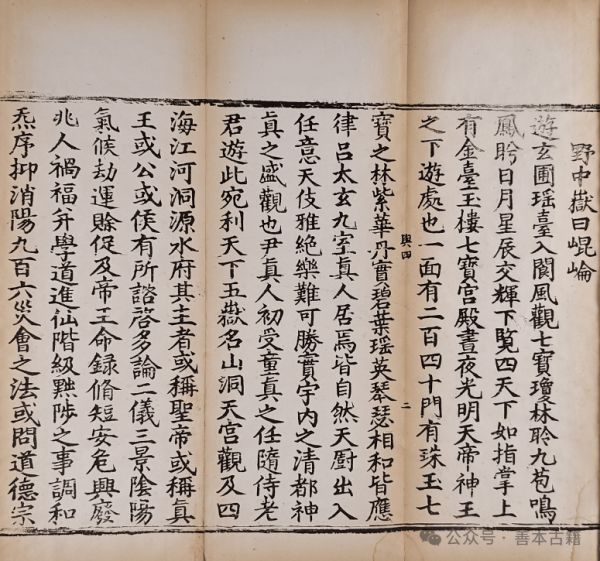 野中嶽曰崐崘
遊玄圃瑶臺入閬風觀七寶瓊林聆九苞鳴
鳳盻日月星辰交輝下覧四天下如指掌上
有金臺玉樓七寶宫殿晝夜光明天帝神王
之下遊處也一面有二百四十門有珠玉七
興四
二
寶之林紫華丹實碧葉瑶英琴瑟相和皆應
律吕太玄九室真人居焉皆自然天厨出入
任意天伎雅絶樂難可勝實宇内之清都神
真之盛觀也尹真人初受童真之任隨侍老
君遊此宛利天下五嶽名山洞天宫觀及四
海江河洞源水府其主者或稱聖帝或稱真
王或公或侯有所諮啓多論二儀三景陰陽
氣候劫運賒促及帝王命録脩短安危興廢
兆人禍福并學道進仙階級黜陟之事調和
炁序抑消陽九百六災會之法或問道德宗
公众号·善本古籍